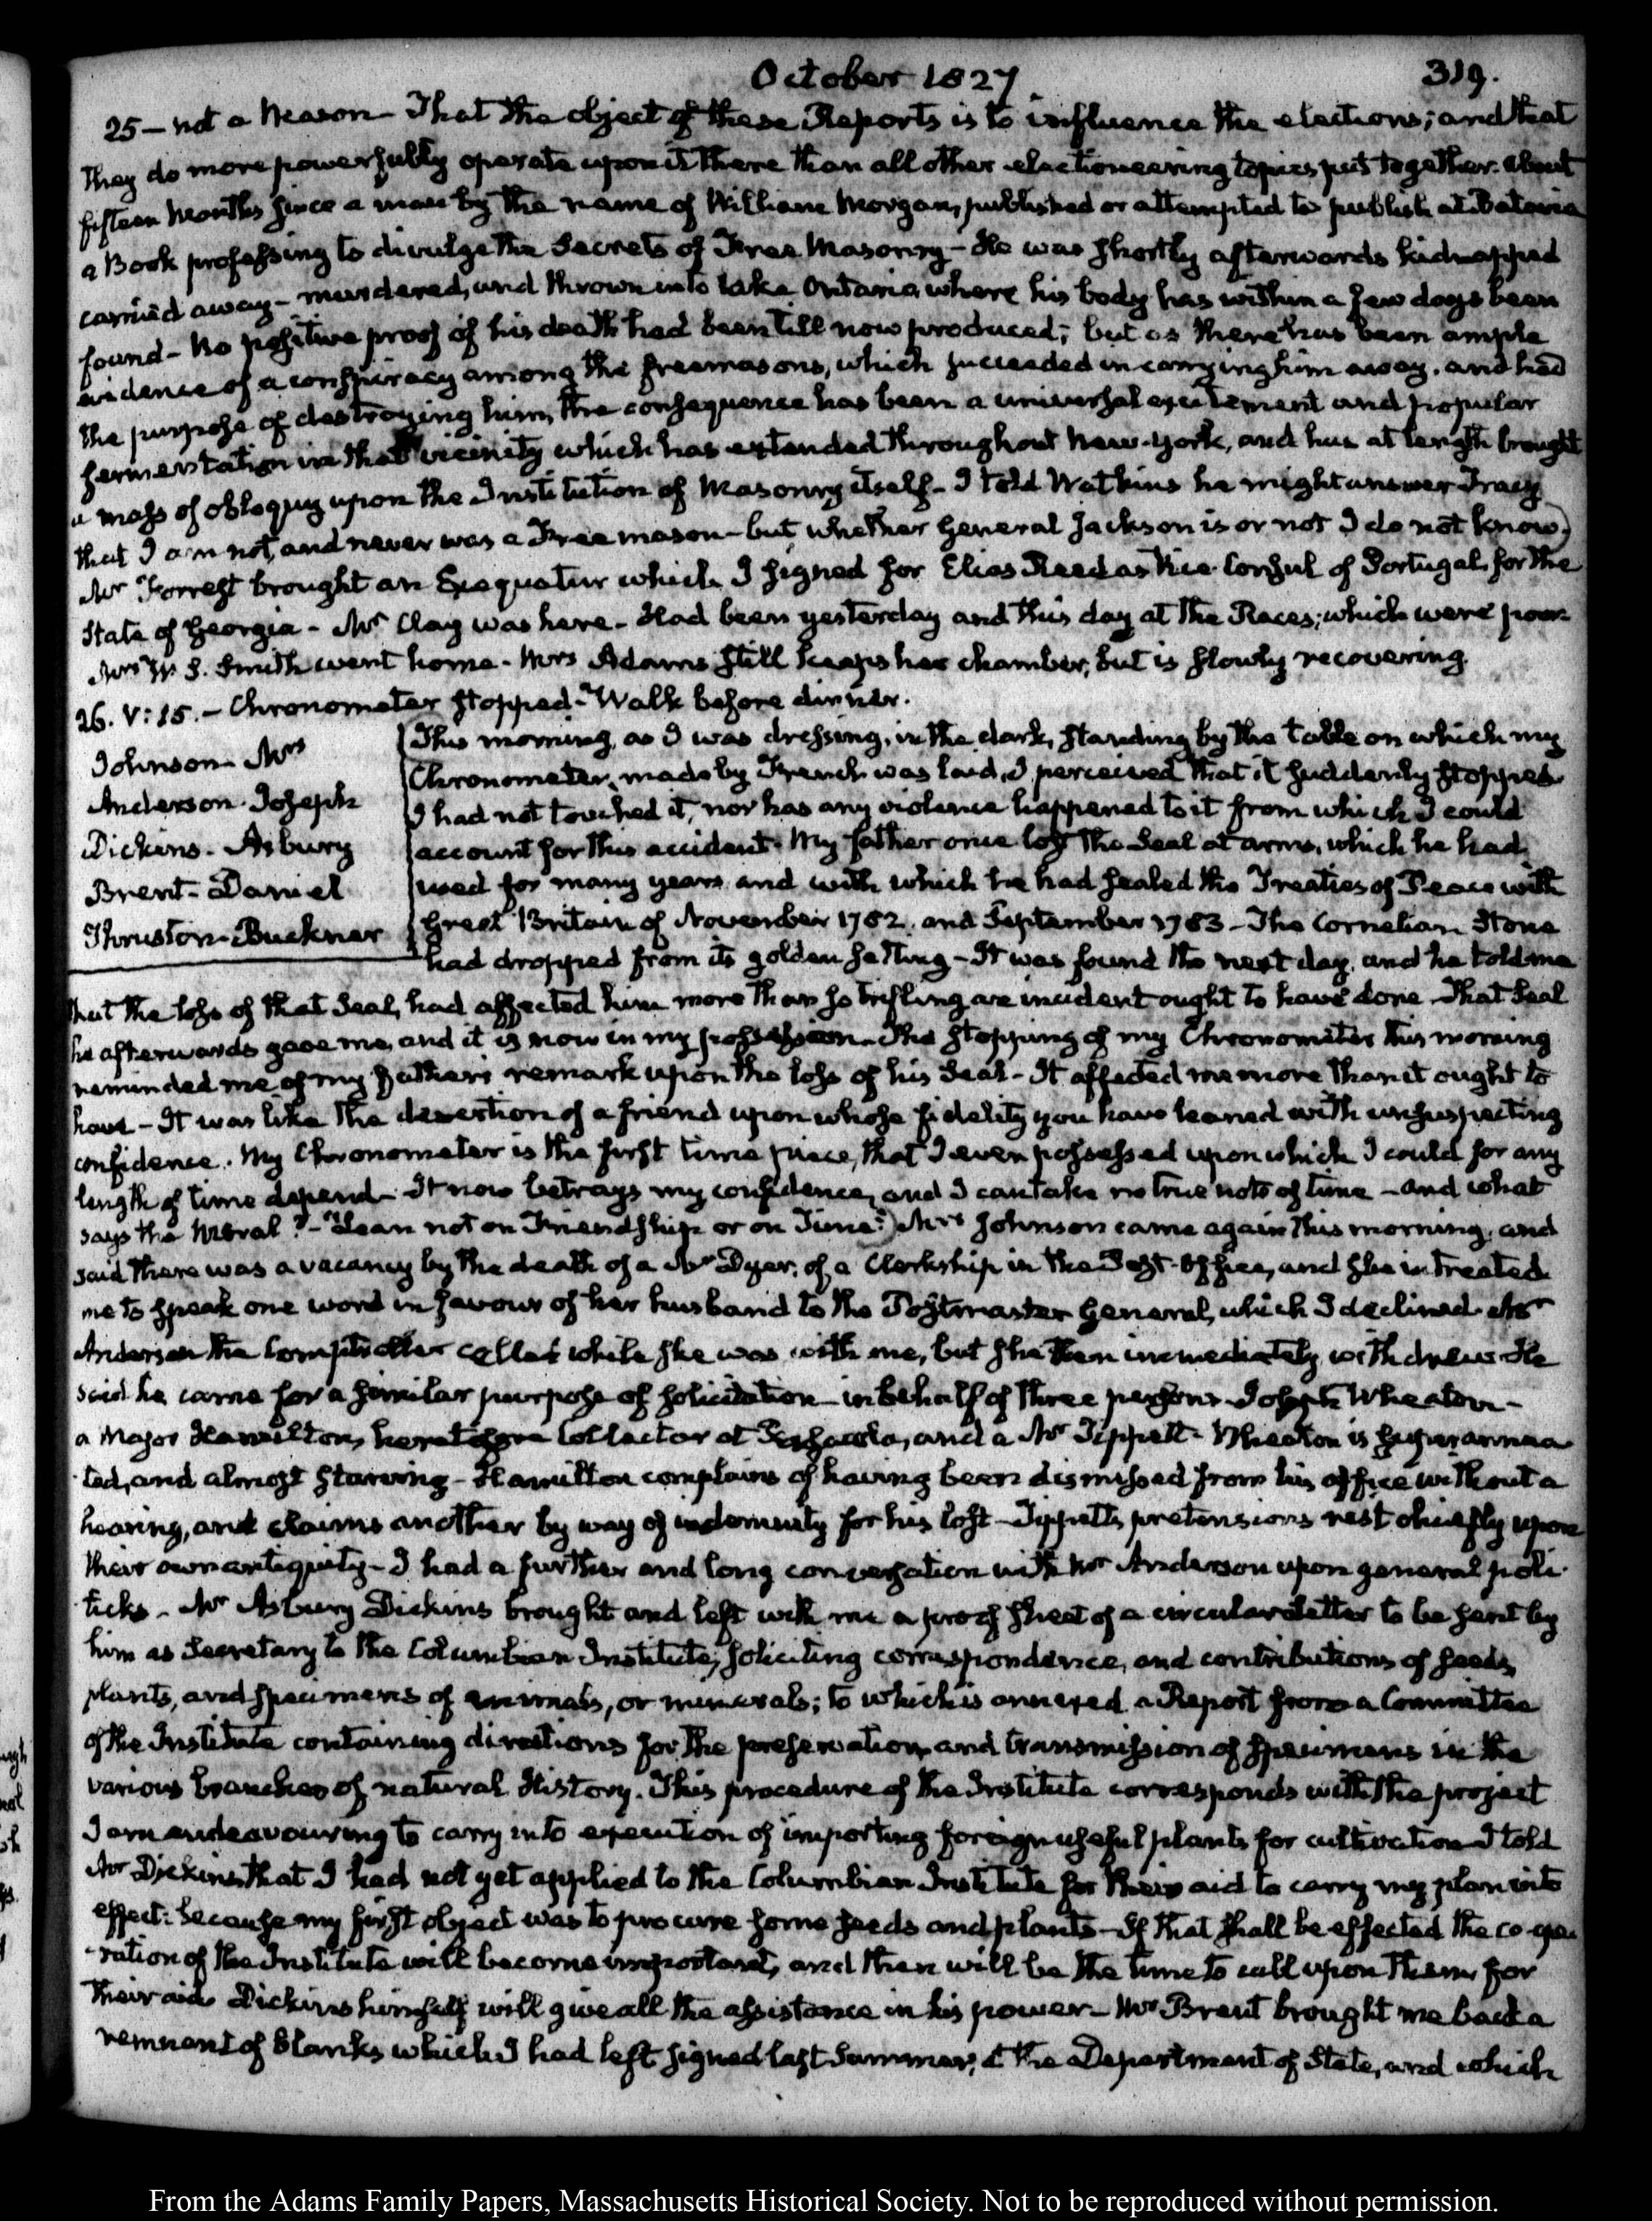 October 1827
319.
25 — not a Mason — That the object of these Reports is to influence the elections; and that
they do more powerfully operate upon it there than all other electioneering topics put together. About
fifteen Months since a man by the name of William Morgan, published or attempted to publish at Batavia
a Book professing to divulge the Secrets of Free Masonry — He was shortly afterwards kidnapped
carried away — murdered, and thrown into lake Ontario, where his body has within a few days been
found — No positive proof of his death had been till now produced; but as there has been ample
evidence of a conspiracy among the freemasons, which succeeded in carrying him away, and had
the purpose of destroying him, the consequence has been a universal excitement and popular
fermentation in that vicinity which has extended throughout New-York, and has at length brought
a mass of obloquy upon the Institution of Masonry itself — I told Watkins he might answer Tracy
that I am not, and never was a Free mason — but whether General Jackson is or not I do not know)
Mr Forrest brought an Exequatur which I signed for Elias Reed as Vice Consul of Portugal, for the
State of Georgia — Mr Clay was here — Had been yesterday and this day at the Races; which were poor
Mrs W. S. Smith went home — Mrs Adams still keeps her chamber, but is slowly recovering.
26. V: 15. — Chronometer stopped — Walk before dinner.
Johnson — Mrs
Anderson. Joseph
Dickins. Asbury
Brent — Daniel
Thruston — Buckner
(This morning, as I was dressing, in the dark, standing by the table on which my
Chronometer, made by French was laid, I perceived that it suddenly stopped
I had not touched it, nor has any violence happened to it from which I could
account for this accident. My father once lost the Seal at arms, which he had
used for many years and with which he had sealed the Treaties of Peace with
Great Britain of November 1782. and September 1783 — The Cornelian Stone
had dropped from its golden setting — It was found the next day, and he told me
that the loss of that Seal, had affected him more than so trifling an incident ought to have done. That Seal
he afterwards gave me, and it is now in my possession. The stopping of my Chronometer this morning
reminded me of my father's remark upon the loss of his Seal — It affected me more than it ought to
have — It was like the desertion of a friend upon whose fidelity you have leaned with unsuspecting
confidence. My Chronometer is the first time piece, that I ever possessed upon which I could for any
length of time depend. It now betrays my confidence, and I can take no true note of time — and what
says the Moral? — "Lean not on Friendship or on Time.") Mrs Johnson came again this morning, and
said there was a vacancy by the death of a Mr Dyer, of a Clerkship in the Post-Office, and she intreated
me to speak one word in favour of her husband to the Postmaster General, which I declined. Mr
Anderson the Comptroller called while she was with me, but she then immediately withdrew. He
said he came for a similar purpose of solicitation — in behalf of three persons — Joseph Wheaton —
a Major Hamilton, heretofore Collector at Pensacola, and a Mr Tippett — Wheaton is superannua
ted, and almost starving — Hamilton complains of having been dismissed from his office without a
hearing, and claims another by way of indemnity for his lost — Tippetts pretensions rest chiefly upon
their own antiquity — I had a further and long conversation with Mr Anderson upon general poli
ticks — Mr Asbury Dickins brought and left with me a proof sheet of a circular letter to be sent by
him as Secretary to the Columbian Institute, soliciting correspondence, and contributions of seeds,
plants, and specimens of animals, or minerals; to which is annexed a Report from a Committee
of the Institute containing directions for the preservation and transmission of specimens in the
various branches of natural History. This procedure of the Institute corresponds with the project
I am endeavouring to carry into execution of importing foreign useful plants for cultivation I told
Mr Dickins that I had not yet applied to the Columbian Institute for their aid to carry my plan into
effect: because my first object was to procure some seeds and plants — If that shall be effected the co-ope
-ration of the Institute will become important, and then will be the time to call upon them for
their aid Dickins himself will give all the assistance in his power — Mr Brent brought me back a
remnant of Blanks which I had left signed last Summer, at the Department of State, and which
From the Adams Family Papers, Massachusetts Historical Society. Not to be reproduced without permission.